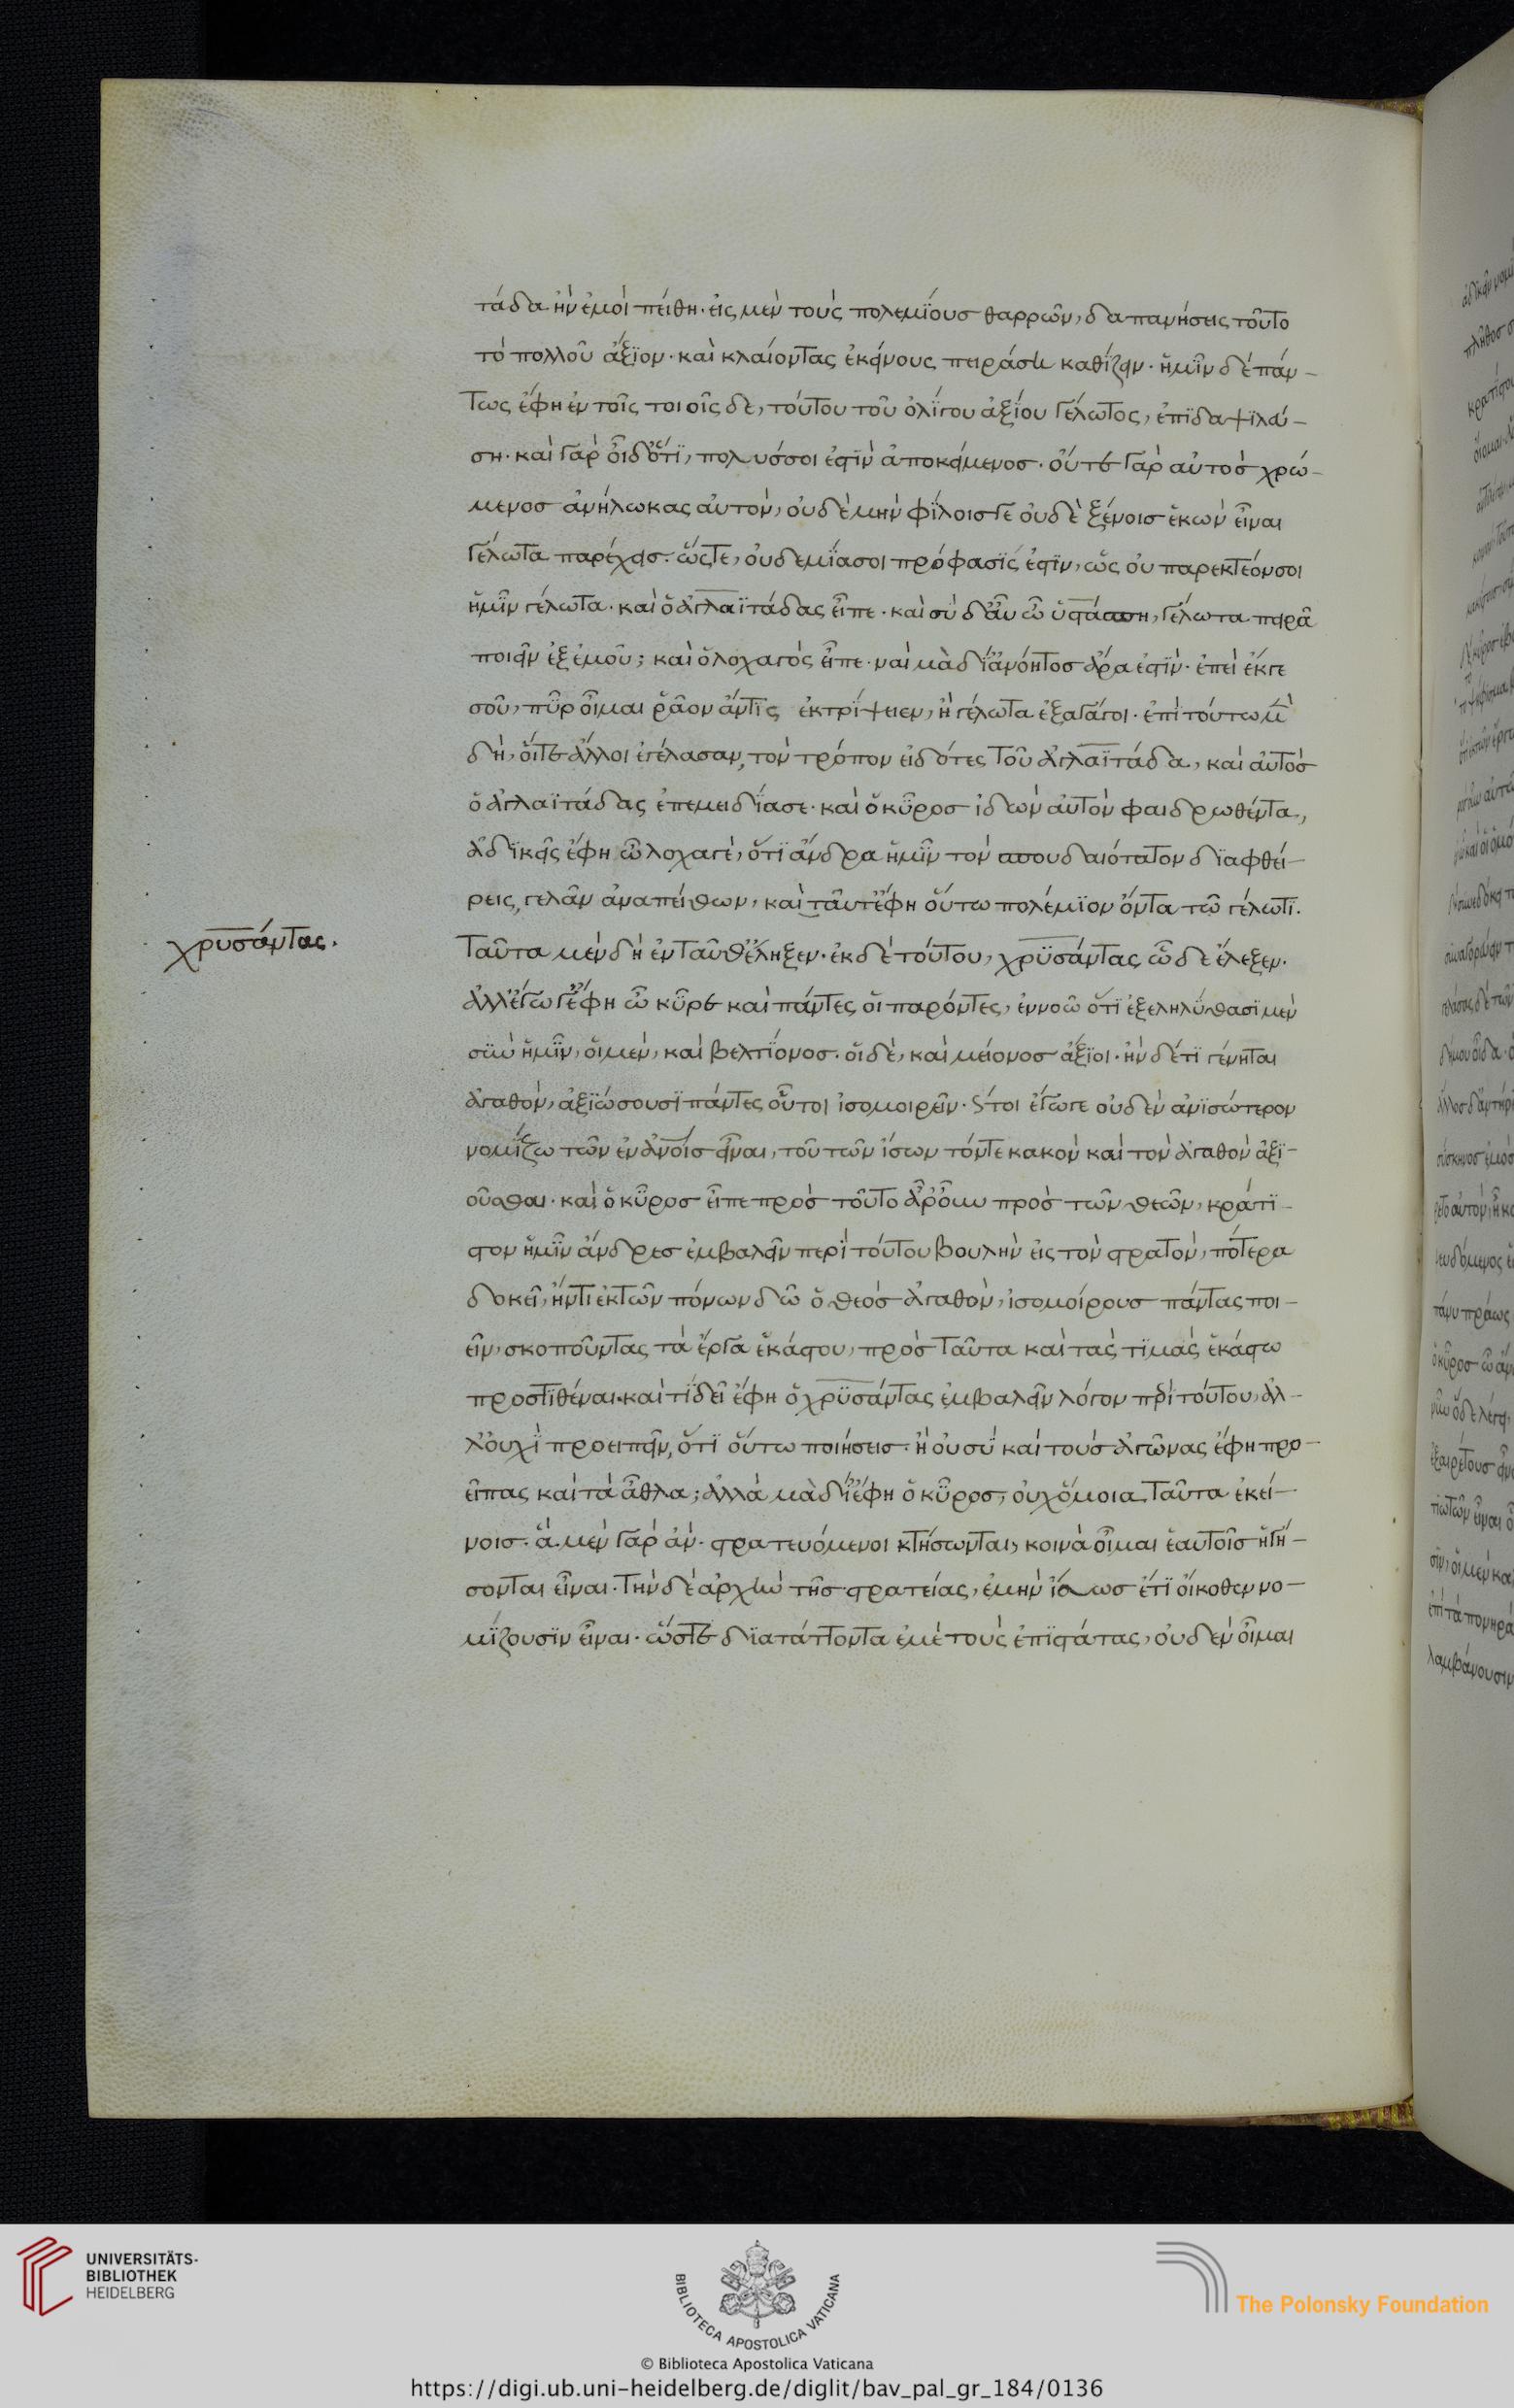 τάδα ἢν ἐμοὶ πείθη· εἰς μὲν τοὺς πολεμΐους θαρρῶν, δαπανήσεις τοῦτο
τὸ πολλοῦ ἄξϊον· καὶ κλαίοντας ἐκείνους πειράση καθίζειν· ἡμῖν δὲ πάν–
τως ἔφη ἐν τοῖς τοιοῖς δε, τούτου τοῦ ὀλίγου ἀξίου γέλωτος, ἐπϊδαψιλεύ–
ση· καὶ γὰρ οἶδ' ὅτϊ, πολυς σοι ἐστϊν ἀποκείμενος· οὔτε γὰρ αὐτὸς χρώ–
μενος ἀνήλωκας αὐτὸν, οὐδὲ μὴν φίλοις γε οὐδὲ ξένοις ἑκὼν εἶναι
γέλωτα παρέχεις· ὥςτε, οὐδεμΐα σοι πρόφασΐς ἐστϊν, ὡς οὐ παρεκτέον σοι
ἡμῖν γέλωτα· καὶ ὁ ἀγλαϊτάδας εἶπε· καὶ σὺ δ' ἂν ὦ ὑστάσπη, γέλωτα πειρᾶ
ποιεῖν ἐξ ἐμοῦ; καὶ ὁ λοχαγὸς εἶπε· ναὶ μὰ δΐ' ἀνόητος ἄρα ἐστϊν· ἐπεὶ ἔκ γε
σοῦ, πῦρ οἶμαι ῥᾷον ἄν τϊς ἐκτρίψειεν, ἢ γέλωτα ἐξαγάγοι· ἐπὶ τούτω μὲν
δὴ, οἵτε ἄλλοι ἐγέλασαν, τὸν τρόπον εἰδότες τοῦ ἀγλαϊτάδα, καὶ αὐτὸς
ὁ ἀγλαϊτάδας ἐπεμειδΐασε· καὶ ὁ κῦρος ἰδὼν αὐτὸν φαιδρωθέντα,
ἀδϊκεῖς ἔφη ὦ λοχαγὲ, ὅτϊ ἄνδρα ἡμῖν τὸν σπουδαιότατον δϊαφθεί–
ρεις, γελᾶν ἀναπείθων, καὶ ταῦτ' ἔφη οὕτω πολέμϊον ὄντα τῶ γέλωτϊ.
χρυσάντας.
Ταῦτα μὲν δὴ ἐνταῦθ' ἔληξεν· ἐκ δὲ τούτου, χρϋσάντας ὧδε ἔλεξεν·
ἀλλ' ἔγωγ' ἔφη ὦ κῦρε καὶ πάντες οἱ παρόντες, ἐννοῶ ὅτϊ ἐξεληλΰθασϊ μὲν
σὺν ἡμῖν, οἱ μὲν, καὶ βελτΐονος· οἱ δὲ, καὶ μείονος ἄξϊοι· ἢν δέ τϊ γένηται
ἀγαθὸν, ἀξϊώσουσϊ πάντες οὗτοι ἰσομοιρεῖν· ϛτοι ἔγωγε οὐδὲν ἀνϊσώτερον
νομΐζω τῶν ἐν ἀνοῖς εἶναι, τοῦ τῶν ἴσων τόν τε κακὸν καὶ τὸν ἀγαθὸν ἀξϊ–
οῦσθαι· καὶ ὁ κῦρος εἶπε πρὸς τοῦτο ἆρ' οὖν πρὸς τῶν θεῶν, κράτϊ–
στον ἡμῖν ἄνδρες ἐμβαλεῖν περὶ τούτου βουλὴν εἰς τὸν στρατὸν, πότερα
δοκεῖ, ἤν τι ἐκ τῶν πόνων δῶ ὁ θεὸς ἀγαθὸν, ἰσομοίρους πάντας ποι–
εῖν, σκοποῦντας τὰ ἔργα ἑκάστου, πρὸς ταῦτα καὶ τὰς τϊμὰς ἑκάστω
προστϊθέναι. καὶ τΐ δεῖ ἔφη ὁ χρϋσάντας ἐμβαλεῖν λόγον πρὶ τούτου, ἀλ–
λ' οὐχΐ προειπεῖν, ὅτϊ οὕτω ποιήσεις· ἢ οὐ σὺ καὶ τοὺς ἀγῶνας ἔφη προ–
εῖπας καὶ τὰ ἆθλα; ἀλλὰ μὰ δΐ' ἔφη ὁ κῦρος, οὐχ ὅμοια ταῦτα ἐκεί–
νοις· ἃ μὲν γὰρ ἂν· στρατευόμενοι κτήσωνται, κοινὰ οἶμαι ἑαυτοῖς ἡγή–
σονται εἶναι· τὴν δὲ ἀρχὴν τῆς στρατείας, ἐμὴν ἴσως ἔτϊ οἴκοθεν νο–
μΐζουσϊν εἶναι· ὥστε δϊατάττοντα ἐμὲ τοὺς ἐπϊστάτας, οὐδὲν οἶμαι
UNIVERSITÄTS-
BIBLIOTHEK
HEIDELBERG
BIBLIOTECA APOSTOLICA VATICANA
The Polonsky Foundation
© Biblioteca Apostolica Vaticana
https://digi.ub.uni-heidelberg.de/diglit/bav_pal_gr_184/0136